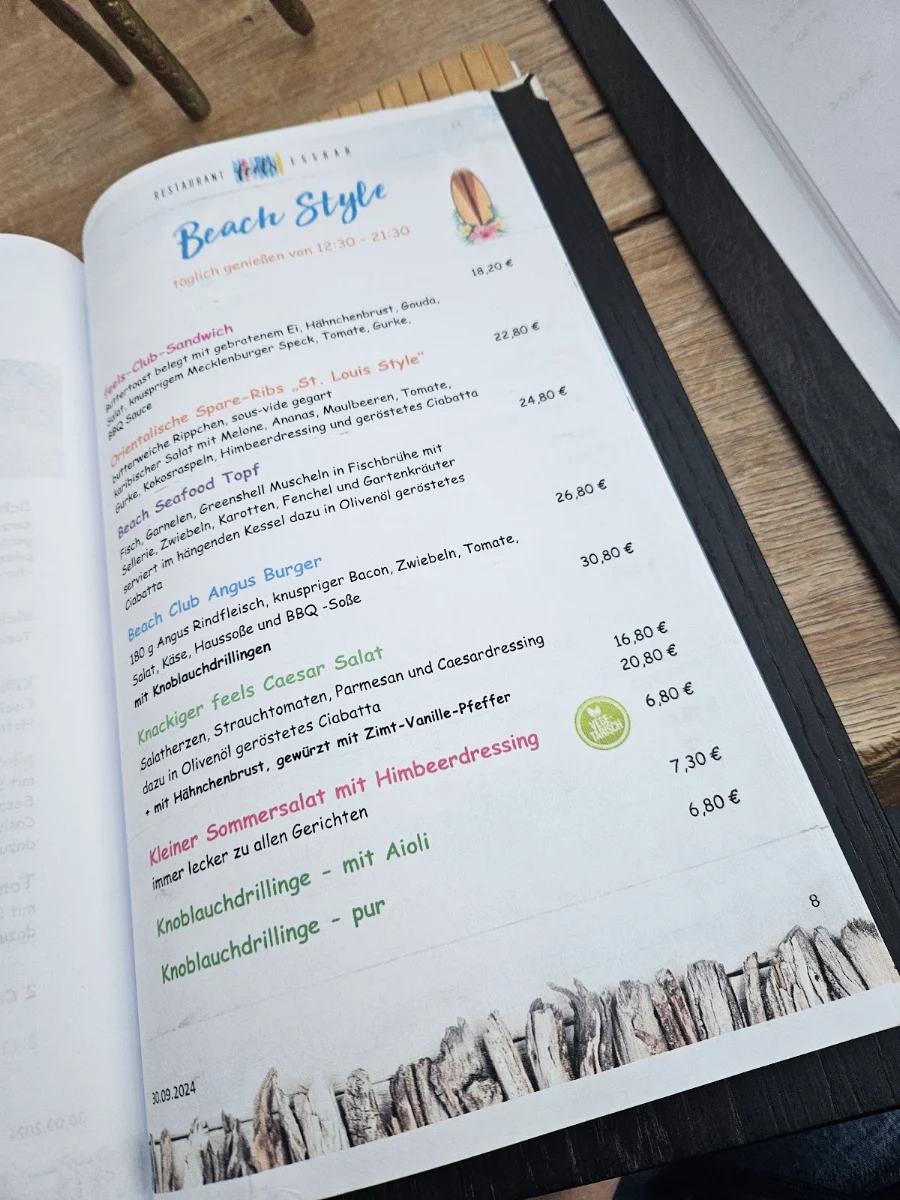 RESTAURANT feels ESSBAR
Beach Style
täglich genießen von 12:30 - 21:30
Feels-Club-Sandwich 18,20 €
Buttertoast belegt mit gebratenem Ei, Hähnchenbrust, Gouda,
Salat, knusprigem Mecklenburger Speck, Tomate, Gurke,
BBQ Sauce
Orientalische Spare-Ribs „St. Louis Style" 22,80 €
butterweiche Rippchen, sous-vide gegart
karibischer Salat mit Melone, Ananas, Maulbeeren, Tomate,
Gurke, Kokosraspeln, Himbeerdressing und geröstetes Ciabatta
Beach Seafood Topf 24,80 €
Fisch, Garnelen, Greenshell Muscheln in Fischbrühe mit
Sellerie, Zwiebeln, Karotten, Fenchel und Gartenkräuter
serviert im hängenden Kessel dazu in Olivenöl geröstetes
Ciabatta
Beach Club Angus Burger 26,80 €
180 g Angus Rindfleisch, knuspriger Bacon, Zwiebeln, Tomate,
Salat, Käse, Haussoße und BBQ -Soße
mit Knoblauchdrillingen 30,80 €
Knackiger feels Caesar Salat 16,80 €
Salatherzen, Strauchtomaten, Parmesan und Caesardressing
dazu in Olivenöl geröstetes Ciabatta
+ mit Hähnchenbrust, gewürzt mit Zimt-Vanille-Pfeffer 20,80 €
Kleiner Sommersalat mit Himbeerdressing 6,80 €
VEGE
TARISCH
immer lecker zu allen Gerichten
Knoblauchdrillinge - mit Aioli 7,30 €
Knoblauchdrillinge - pur 6,80 €
8
30.09.2024